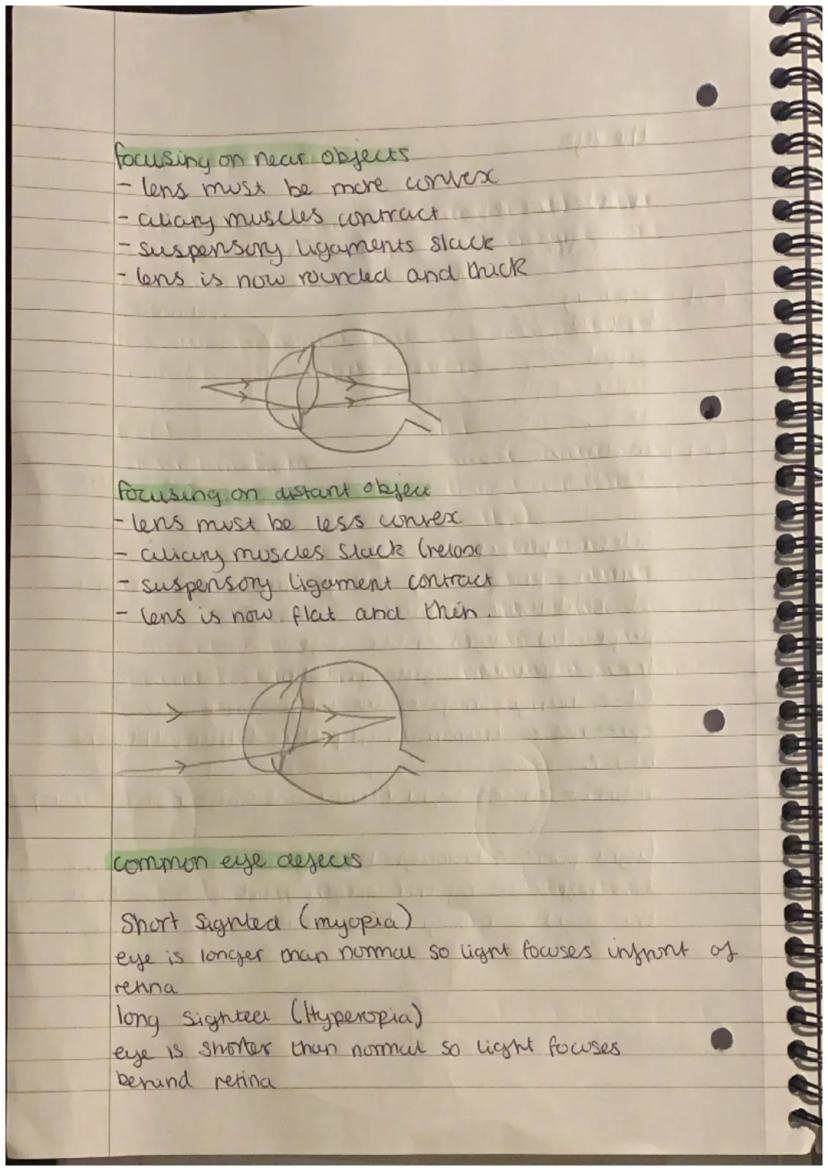 focusing on near objects
- lens must be more convex
- ciliary muscles contract
- suspensory ligaments slack
- lens is now rounded and thick
focusing on distant object
- lens must be less convex
- ciliary muscles slack (relax
- suspensory ligament contract
- lens is now flat and thin.
common eye defects
Short Sighted (myopia)
eye is longer than normal so light focuses infront of
retina
long sighted (Hyperopia)
eye is shorter than normal so light focuses
behind retina